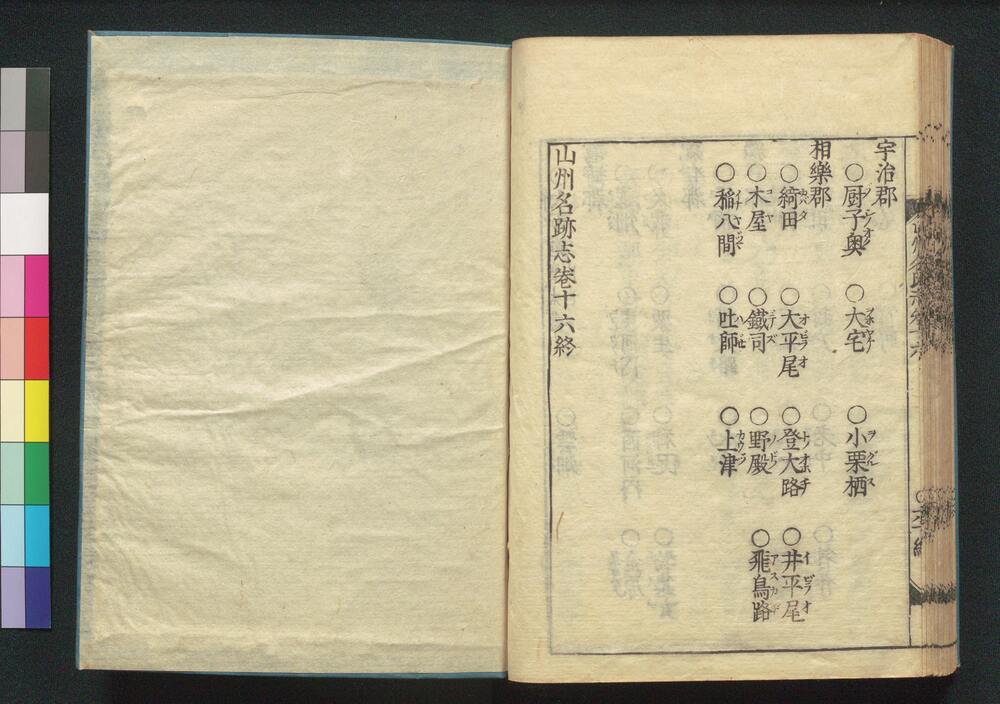 宇治郡
○厨子奥 ○大宅 ○小栗栖
相樂郡
○綺田 ○大平尾 ○登大路 ○井平尾
○木屋 ○鐵司 ○野殿 ○飛鳥路
○稲八間 ○吐師 ○上津
山州名跡志卷十六終